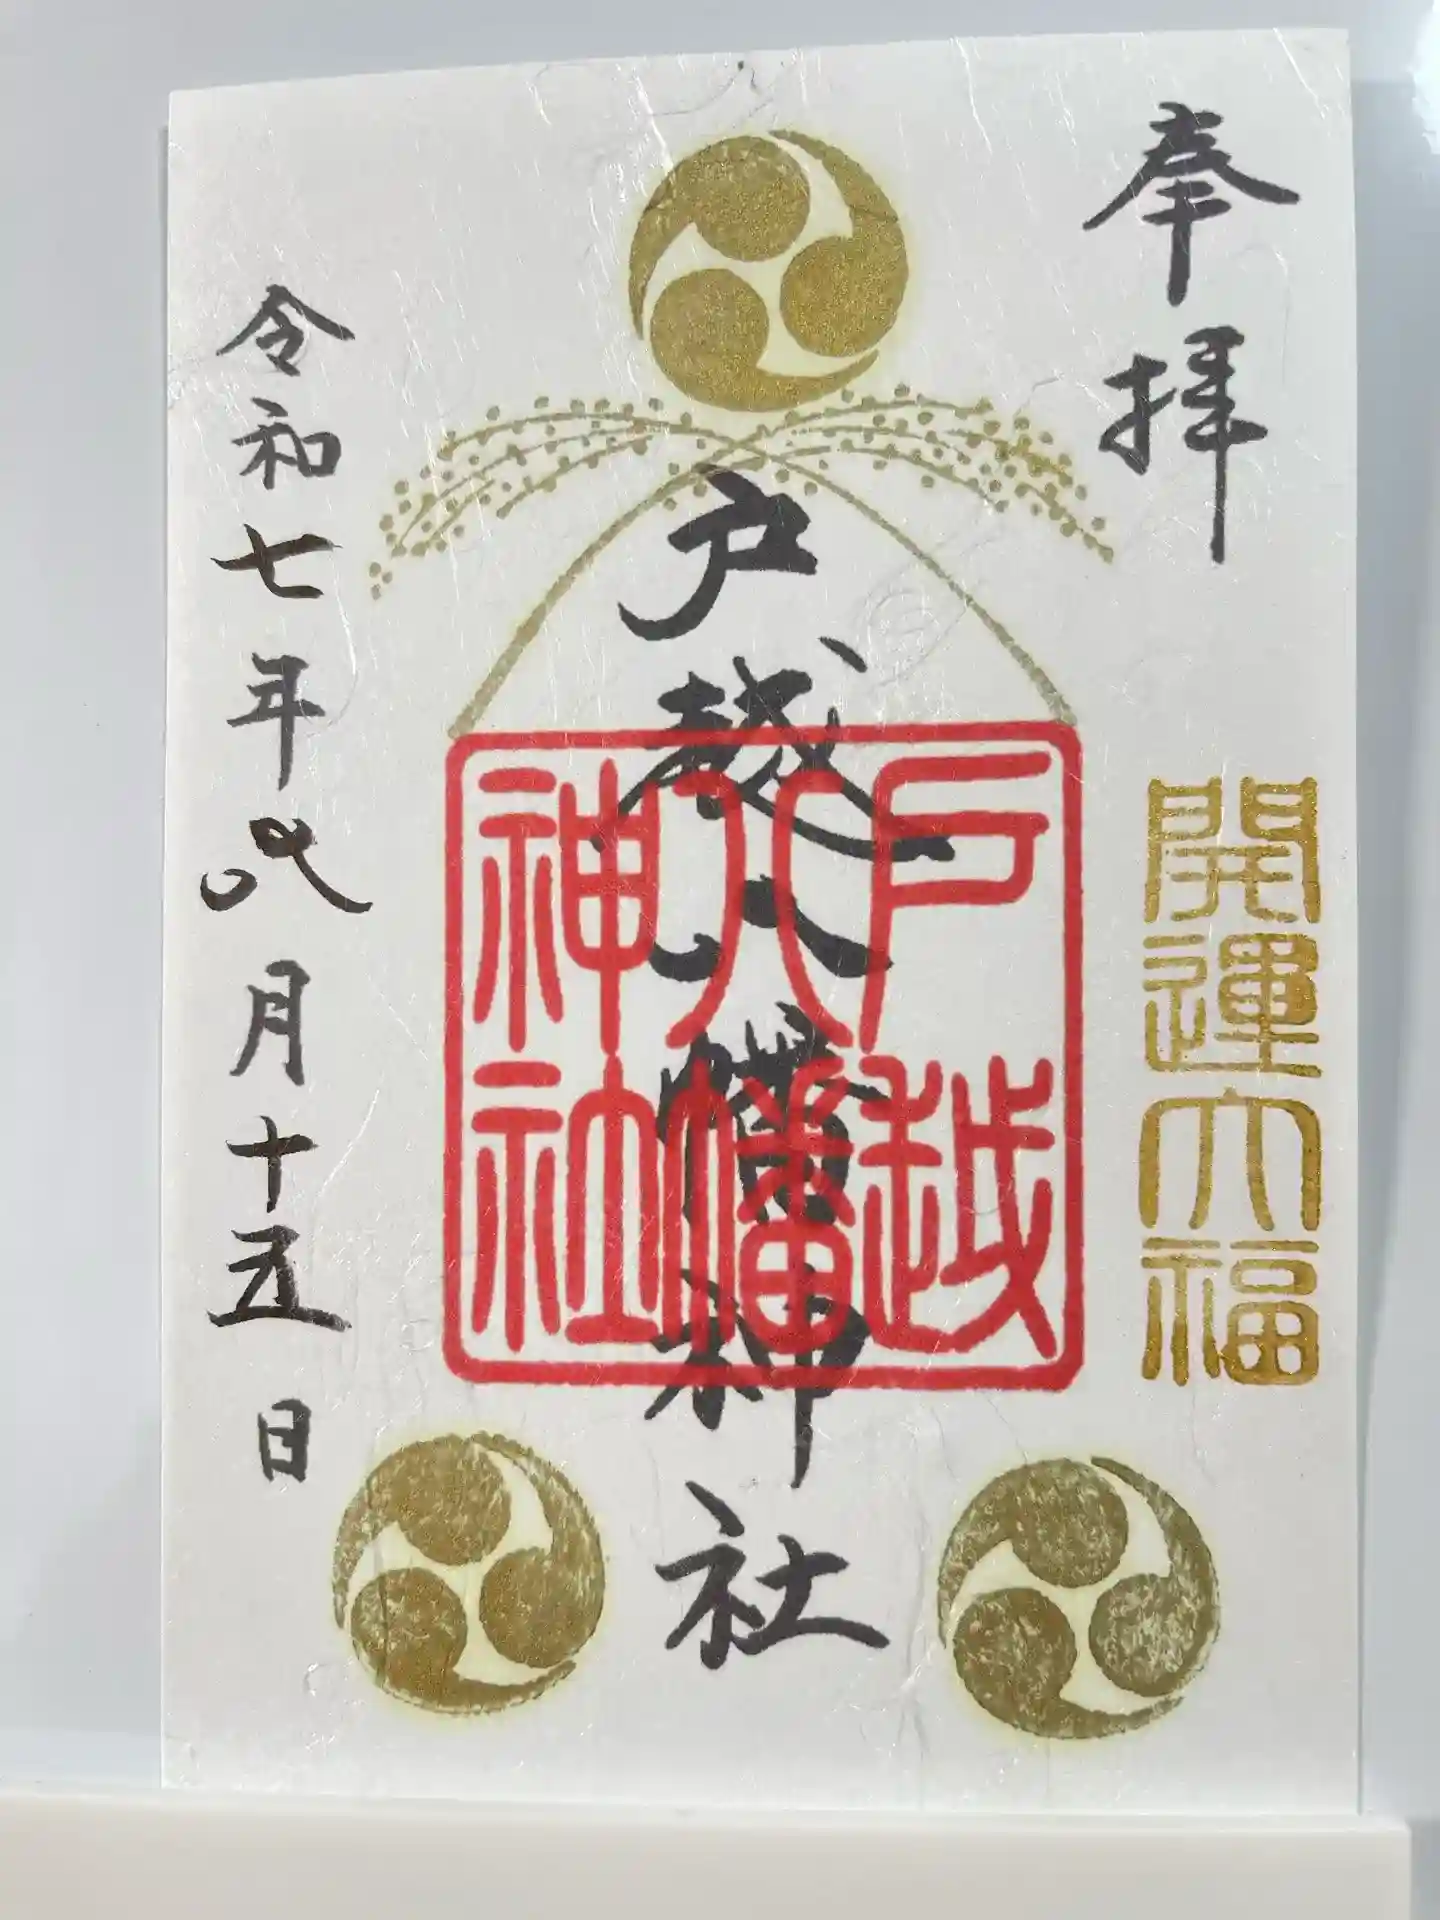 奉拝
開運大福
戸越八幡神社
戸越
八幡
神社
令和七年八月十五日